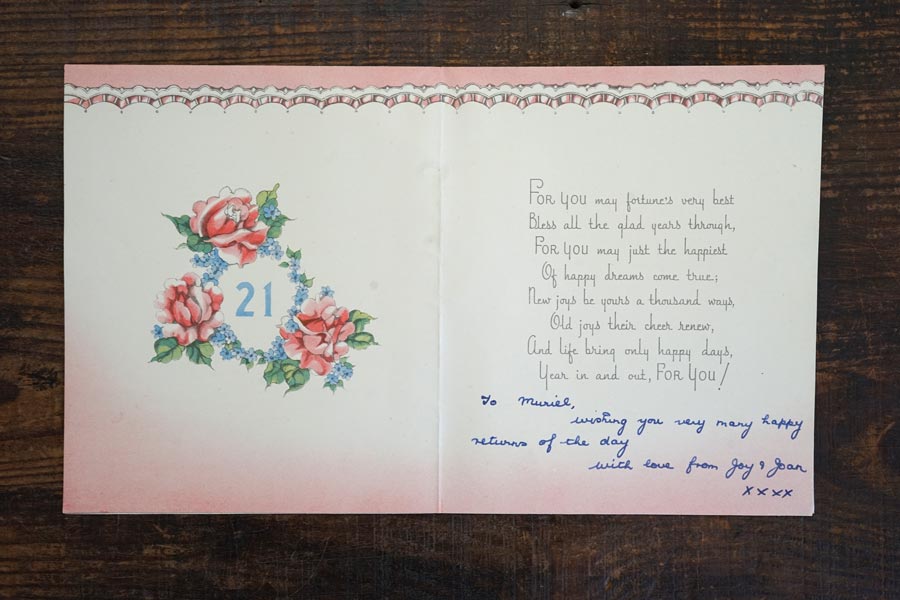 21
FOR YOU may fortune's very best
Bless all the glad years through,
FOR YOU may just the happiest
Of happy dreams come true;
New joys be yours a thousand ways,
Old joys their cheer renew,
And life bring only happy days,
Year in and out, FOR YOU!
To Muriel,
wishing you very many happy
returns of the day
with love from Joy & Joan
xxxx